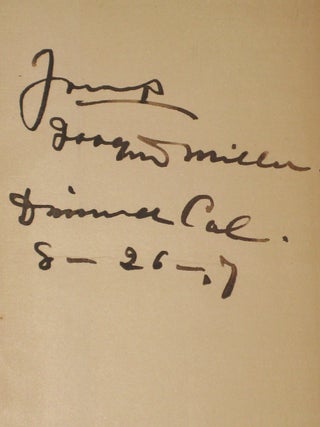 Yours
Joaquin Miller.
Dimond Cal.
8 – 26 – .7